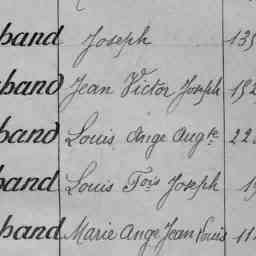 band Joseph 139
band Jean Victor Joseph 152
band Louis Ange Augte 22
band Louis Fois Joseph 19
band Marie Ange Jean Louis 11